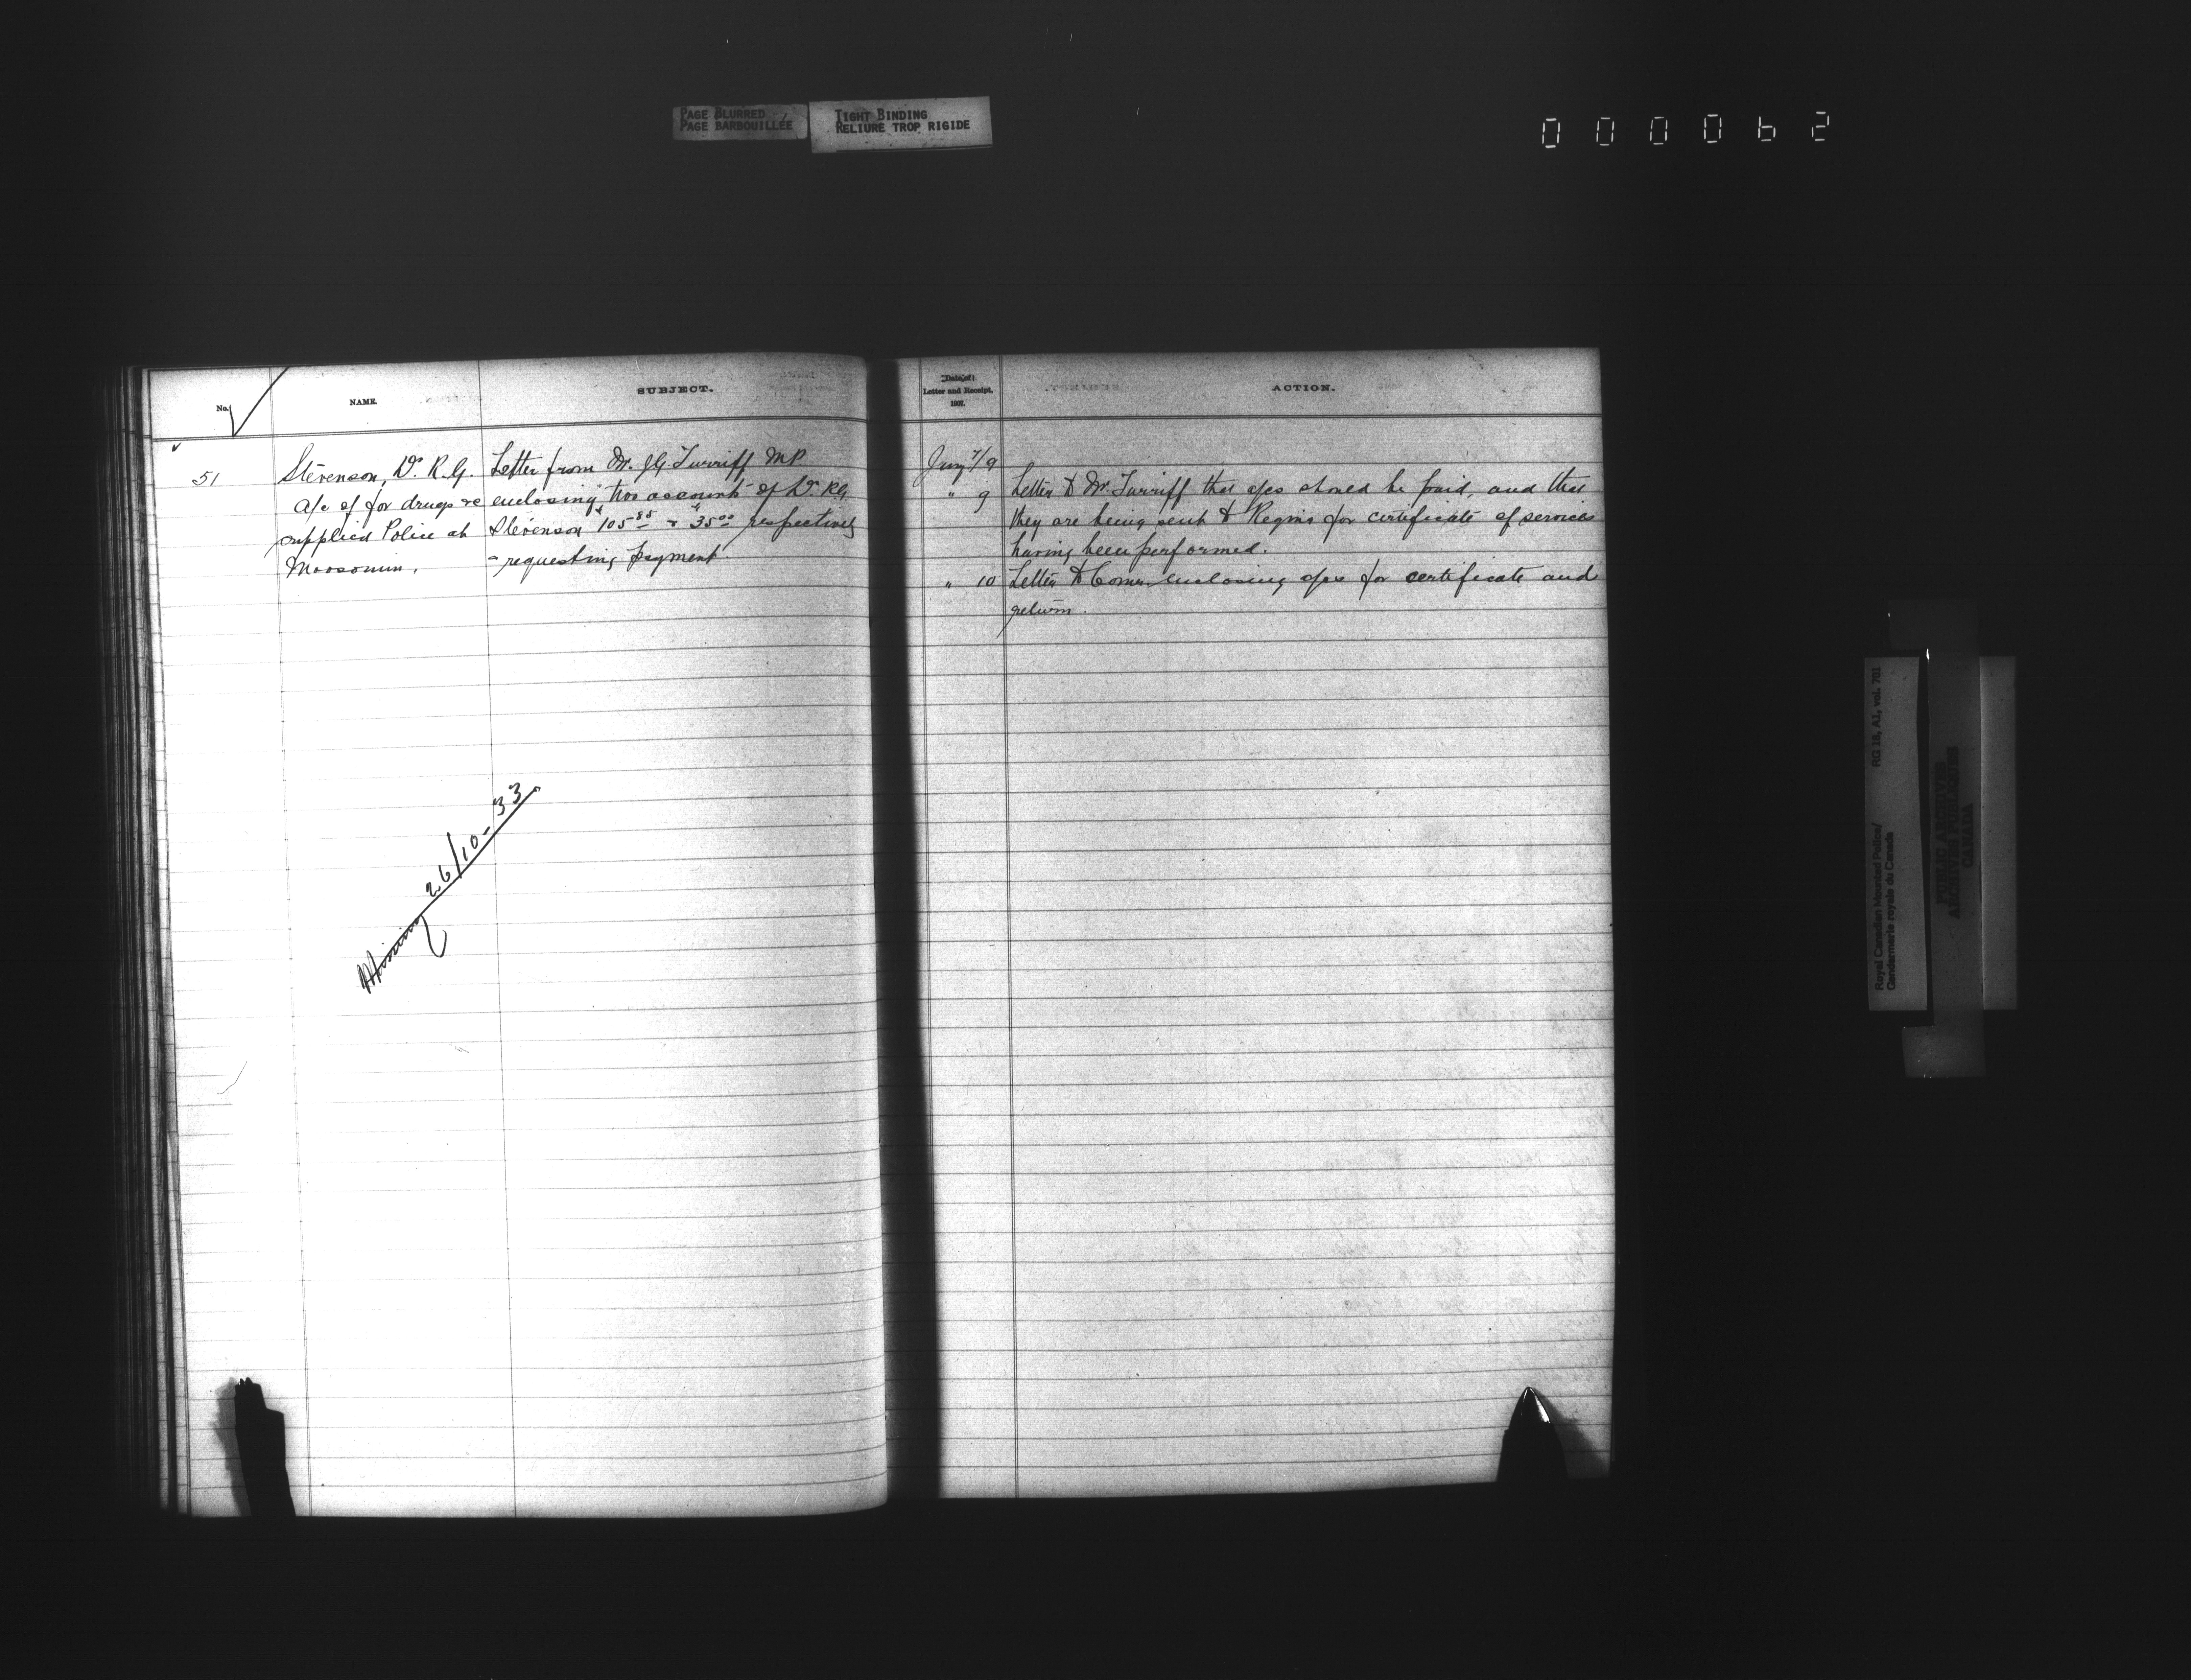 PAGE BLURRED
PAGE BARBOUILLÉE
TIGHT BINDING
RELIURE TROP RIGIDE
000062
No.
NAME.
SUBJECT.
51
Stevenson, Dr. R.G.
a/c of for drugs &c
supplied Police at
Moosomin.
Letter from Mr. J.G. Turriff MP
enclosing two accounts of Dr. R.G.
Stevenson $105.85 & $35.00 respectively
- requesting payment.
Missing 26/10-33
Date of
Letter and Receipt,
1907.
ACTION.
Jany 7/9
" 9 Letter to Mr. Turriff that a/cs should be paid, and that
they are being sent to Regina for certificate of services
having been performed.
" 10 Letter to Comr. enclosing a/cs for certificate and
return.
Royal Canadian Mounted Police/
Gendarmerie royale du Canada
RG 18, A1, vol. 701
PUBLIC ARCHIVES
ARCHIVES PUBLIQUES
CANADA